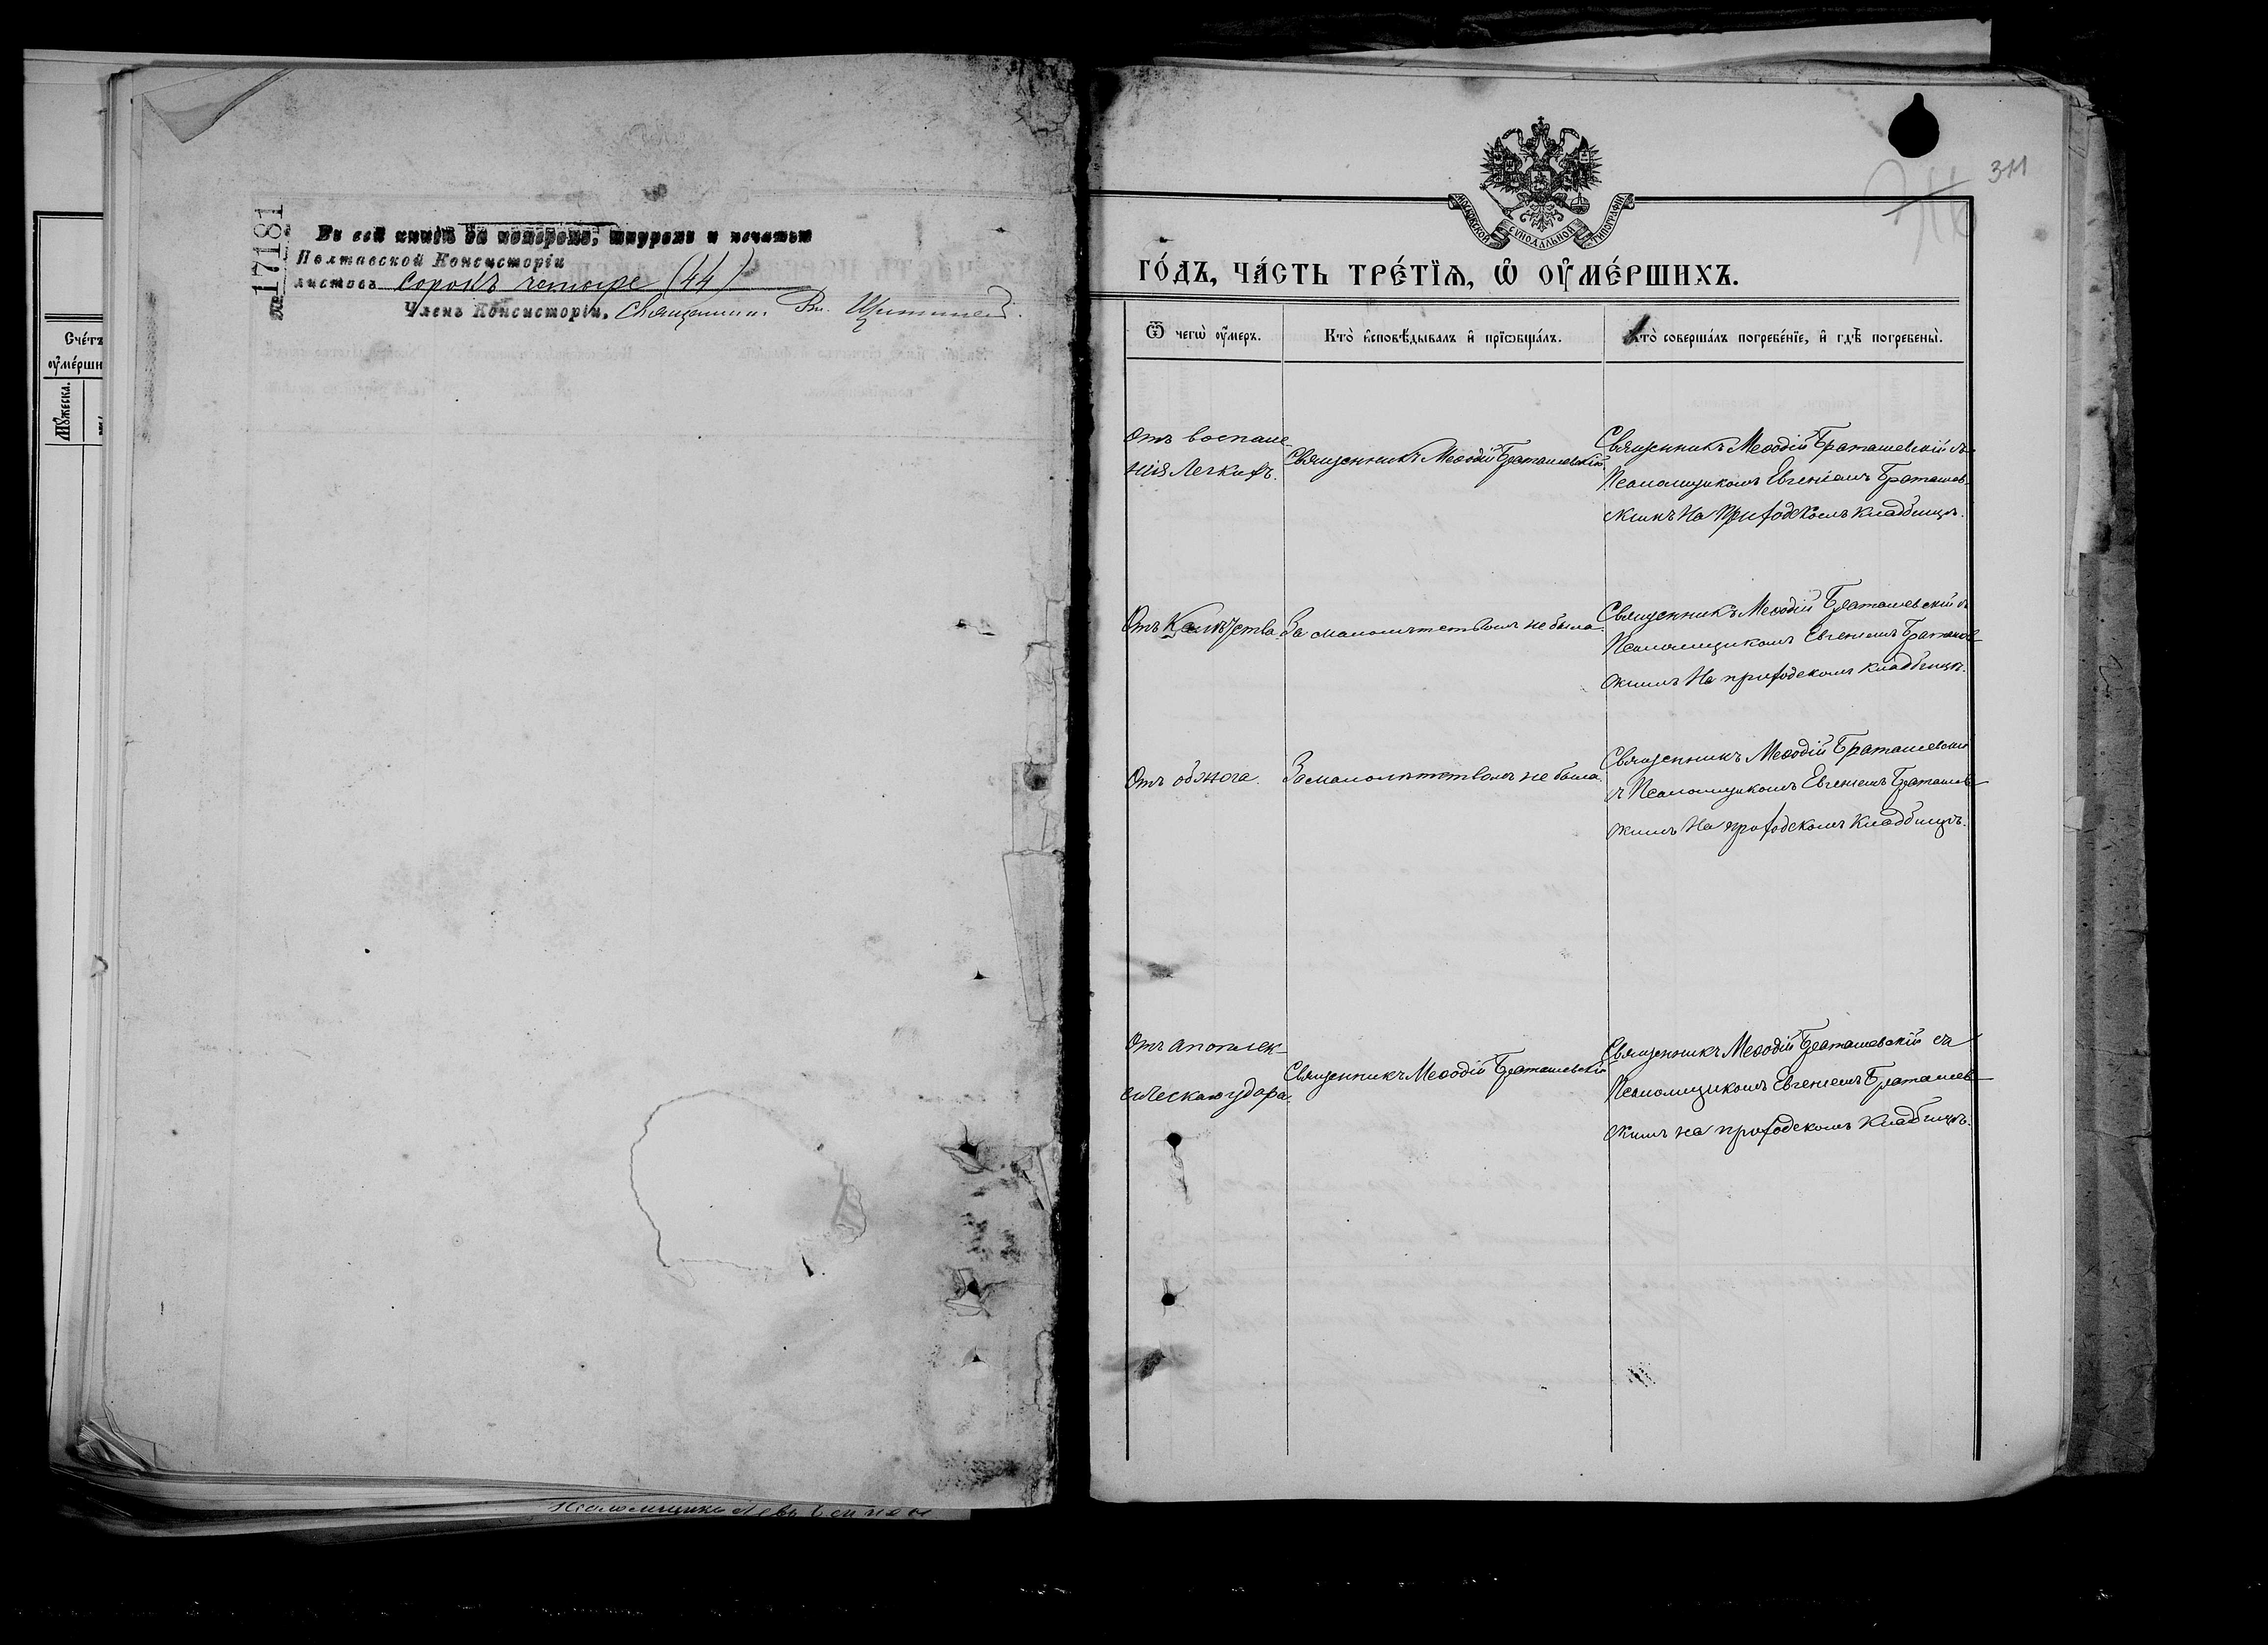 Счетъ
оумерши
Мꙋжеска.
17181
Въ сей книгѣ за номеромъ, шнуромъ и печатью
Полтавской Консисторіи
листовъ сорокъ четыре (44)
Членъ Консисторіи, Священникъ Вл.
311
МОСКОВСКОЙ СѴНОДАЛЬНОЙ ТИПОГРАФІИ
ГО́ДЪ, ЧА́СТЬ ТРЕ́ТЇѦ, Ѽ ОУ҆МЕ́РШИХЪ.
Ѿ чегѡ̀ оу҆́меръ.
Кто̀ и҆сповѣ́дывалъ и҆ прїѡбща́лъ.
Кто̀ соверша́лъ погребе́нїе, и҆ гдѣ̀ погребены̀.
Отъ воспале
нія Легкихъ.
Священникъ Меѳодій Браташевскій
Священникъ Меѳодій Браташевскій съ
Псаломщикомъ Евгеніемъ Браташев
скимъ На Приходскомъ Кладбищѣ.
Отъ Калѣчества
За малолѣтствомъ не была.
Священникъ Меѳодій Браташевскій съ
Псаломщикомъ Евгеніемъ Браташев
скимъ На приходскомъ Кладбищѣ.
Отъ обжога.
За малолѣтствомъ не была.
Священникъ Меѳодій Браташевскій
съ Псаломщикомъ Евгеніемъ Браташев
скимъ На приходскомъ Кладбищѣ.
Отъ апоплек-
сическаго удара.
Священникъ Меѳодій Браташевскій
Священникъ Меѳодій Браташевскій съ
Псаломщикомъ Евгеніемъ Браташев
скимъ на приходскомъ Кладбищѣ.
Псаломщикъ